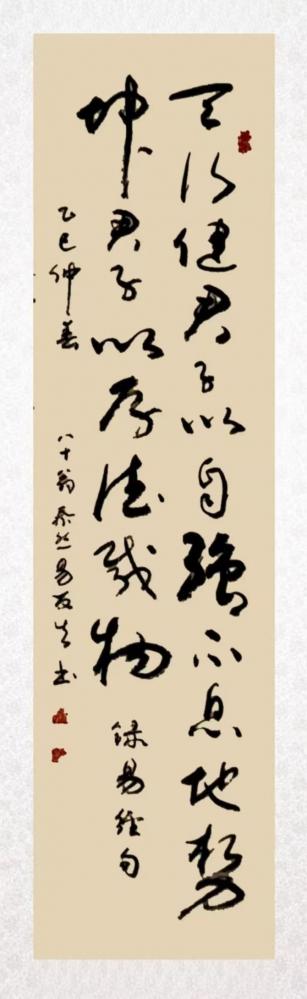 天行健君子以自强不息地势
坤君子以厚德载物
录易经句
乙巳仲春
八十翁泰然易友生书